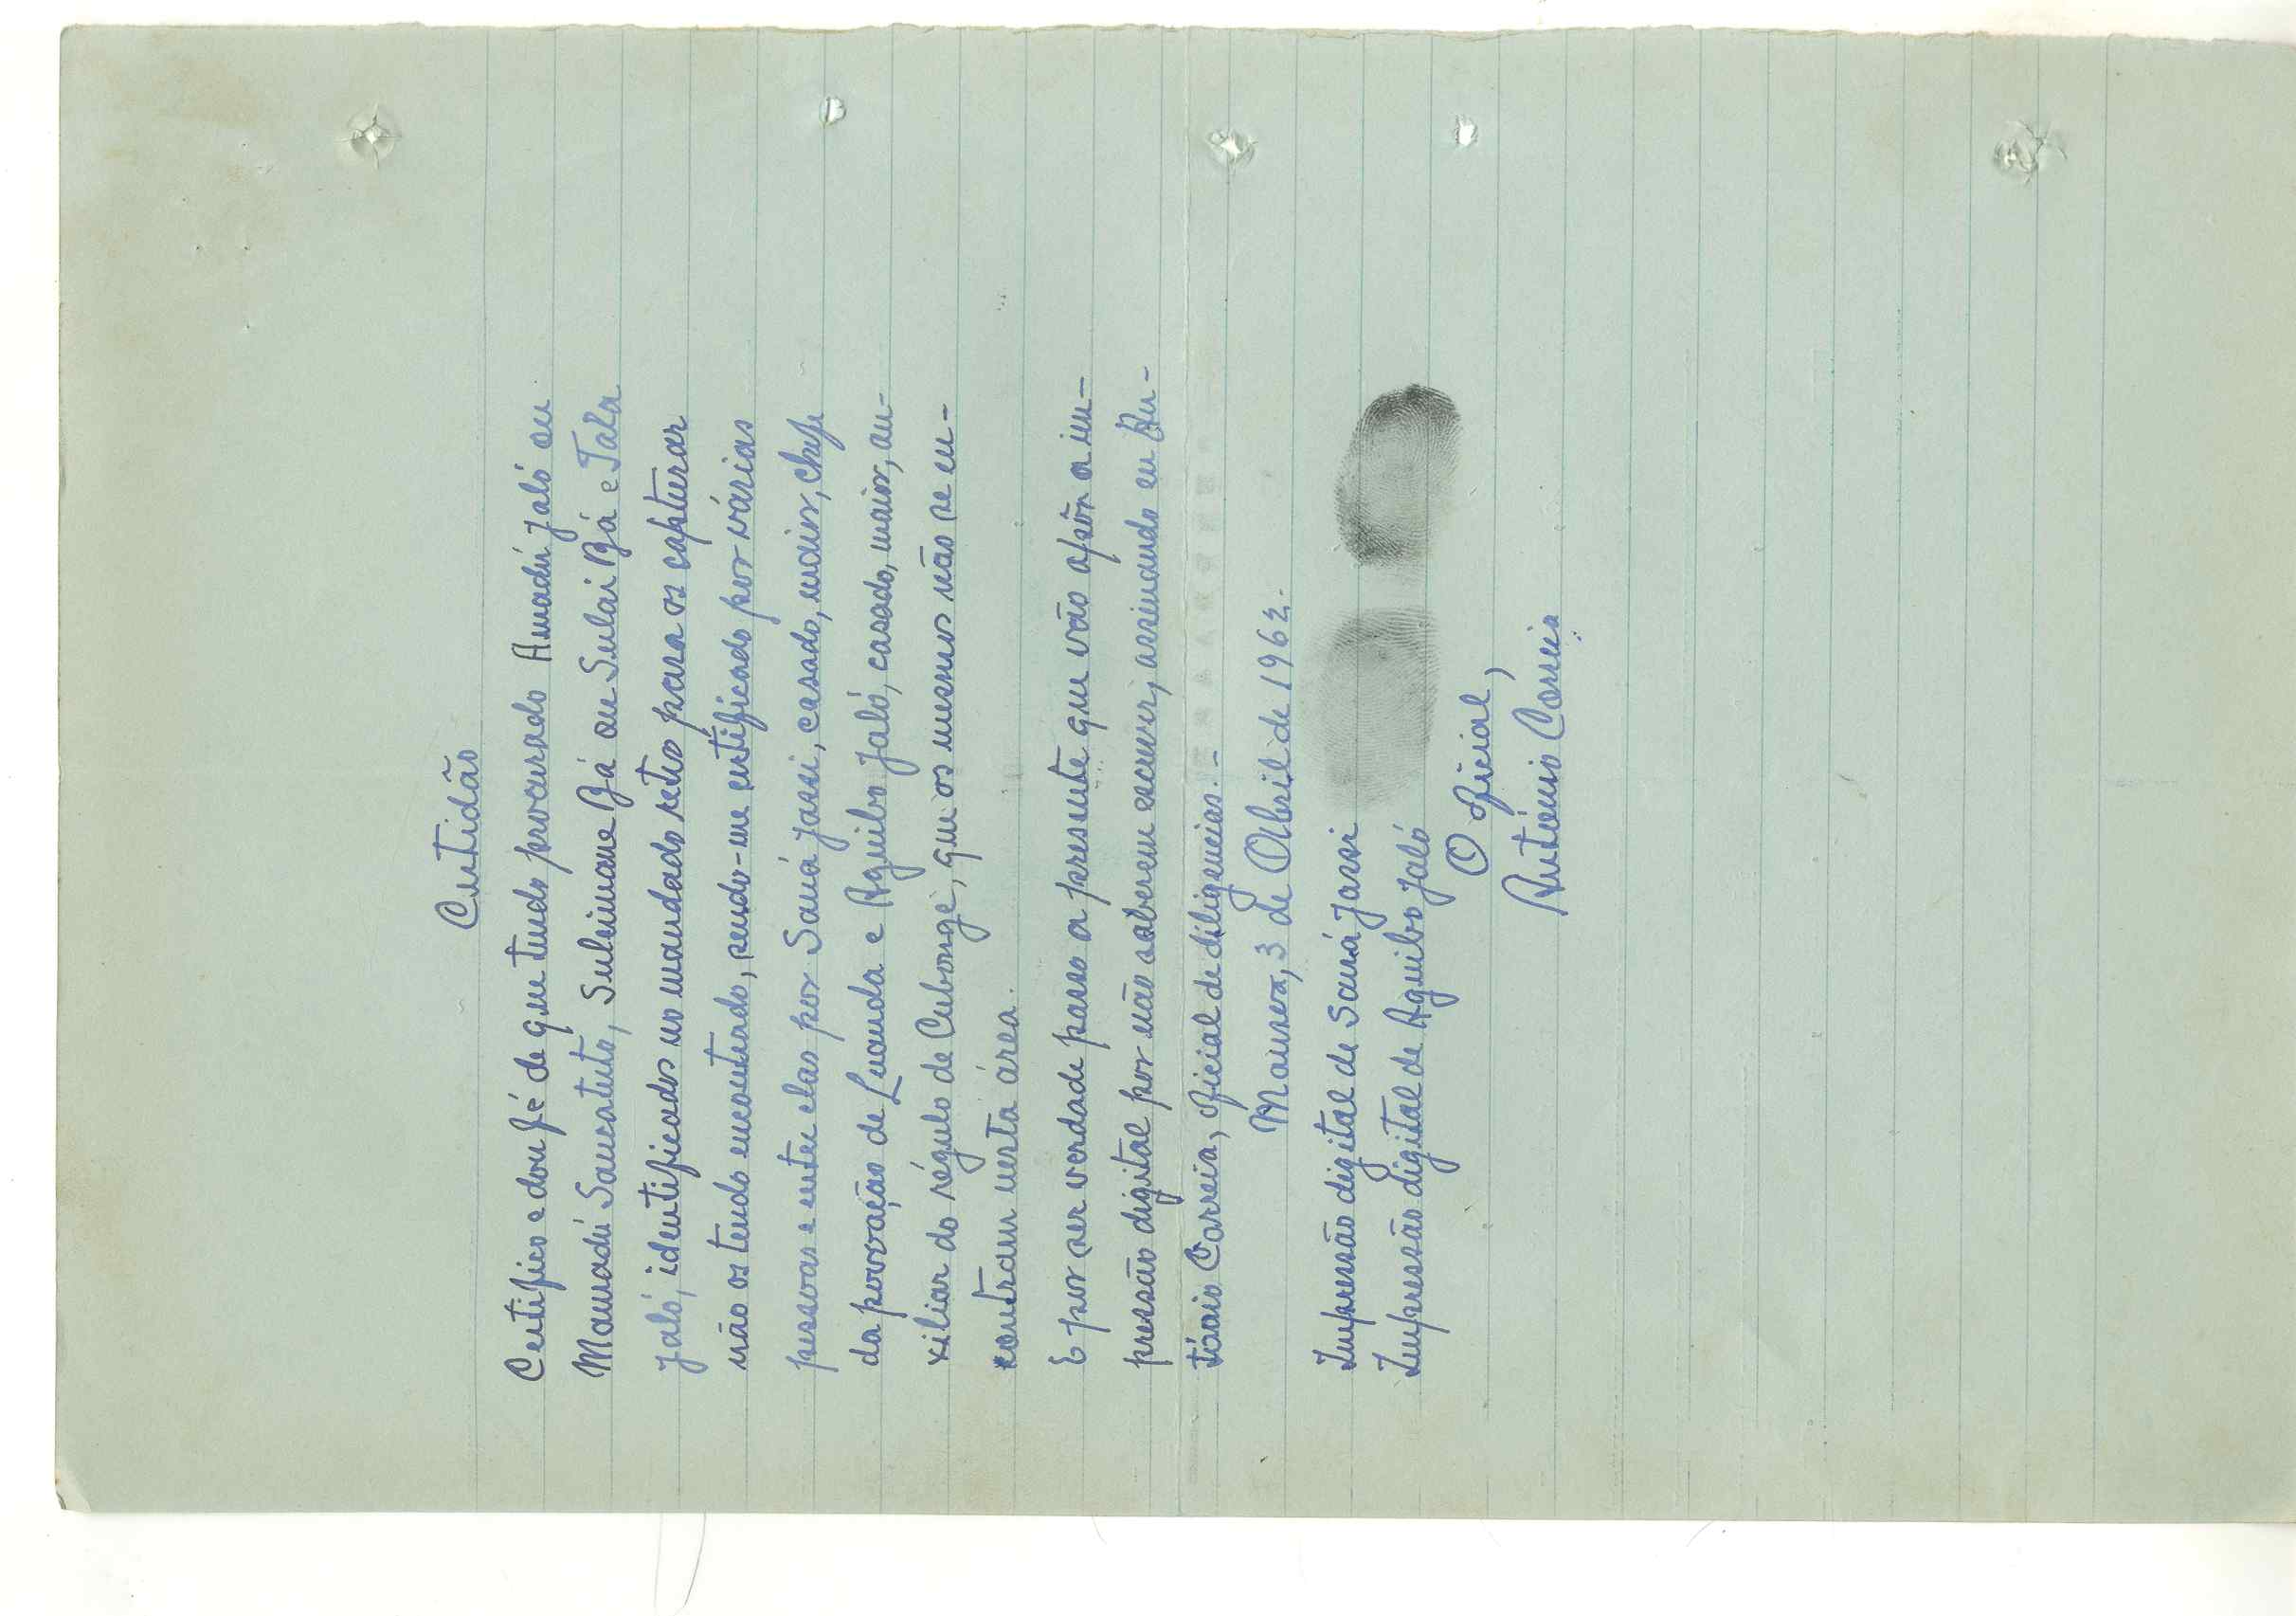 Certidão
Certifico e dou fé de que tendo procurado Amadú Jaló ou
Mamadú Sancatuto, Suleimane Bá ou Sulai Bá e Tala
Jaló, identificados no mandado retro para os capturar
não os tendo encontrado, sendo-me certificado por várias
pessoas e entre elas por Saná Jassi, casado, maior, chefe
da povoação de Luanda e Aguibo Jaló, casado, maior, au-
xiliar do régulo de Cubonge, que os mesmos não se en-
contram nesta área.
E por ser verdade passo a presente que vão apôr a im-
pressão digital por não saberem escrever, assinando eu An-
tónio Correia, oficial de diligencias. -
Mansoa, 3 de Abril de 1962.-
Impressão digital de Saná Jassi
Impressão digital de Aguibo Jaló
O oficial,
António Correia